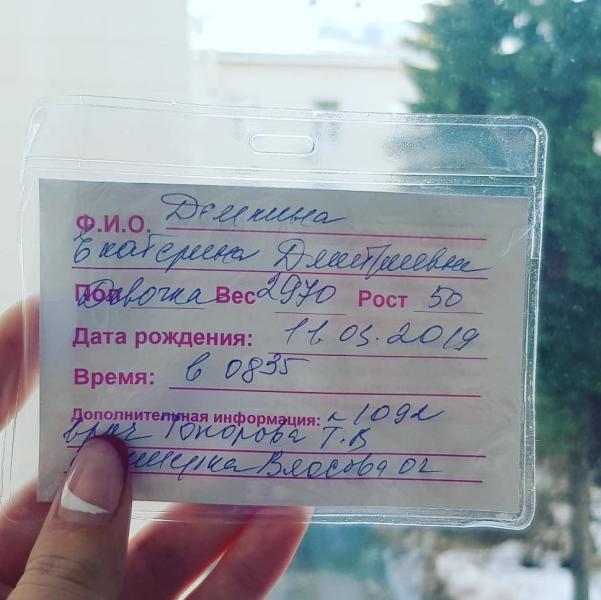 Ф.И.О. Демкина
Екатерина Дмитриевна
Пол Девочка Вес 2970 Рост 50
Дата рождения: 11.03.2019
Время: в 0835
Дополнительная информация:
врач Т.В
Власова